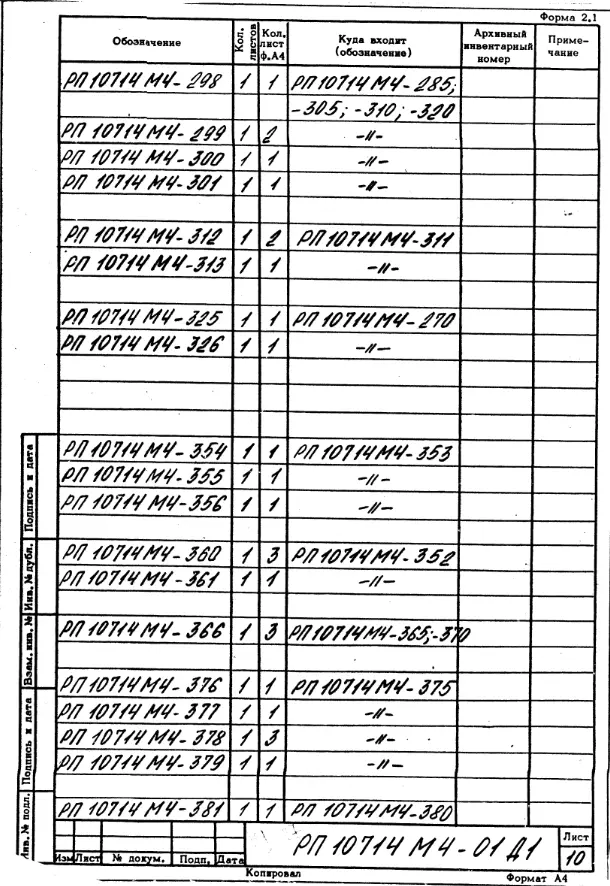 Форма 2.1
Обозначение Кол. листов Кол. лист ф.А4 Куда входит (обозначение) Архивный инвентарный номер Примечание
РП 10714 М4-298 1 1 РП 10714 М4-285;
-305; -310; -320
РП 10714 М4-299 1 2 -//-
РП 10714 М4-300 1 1 -//-
РП 10714 М4-301 1 1 -//-
РП 10714 М4-312 1 2 РП 10714 М4-311
РП 10714 М4-313 1 1 -//-
РП 10714 М4-325 1 1 РП 10714 М4-270
РП 10714 М4-326 1 1 -//-
РП 10714 М4-354 1 1 РП 10714 М4-353
РП 10714 М4-355 1 1 -//-
РП 10714 М4-356 1 1 -//-
РП 10714 М4-360 1 3 РП 10714 М4-352
РП 10714 М4-361 1 1 -//-
РП 10714 М4-366 1 3 РП 10714 М4-365;-370
РП 10714 М4-376 1 1 РП 10714 М4-375
РП 10714 М4-377 1 1 -//-
РП 10714 М4-378 1 3 -//-
РП 10714 М4-379 1 1 -//-
РП 10714 М4-381 1 1 РП 10714 М4-380
Подпись и дата
Инв. № дубл.
Взам. инв. №
Подпись и дата
Инв. № подл.
Изм Лист № докум. Подп. Дата
РП 10714 М4-01 Д1
Лист
10
Копировал Формат А4